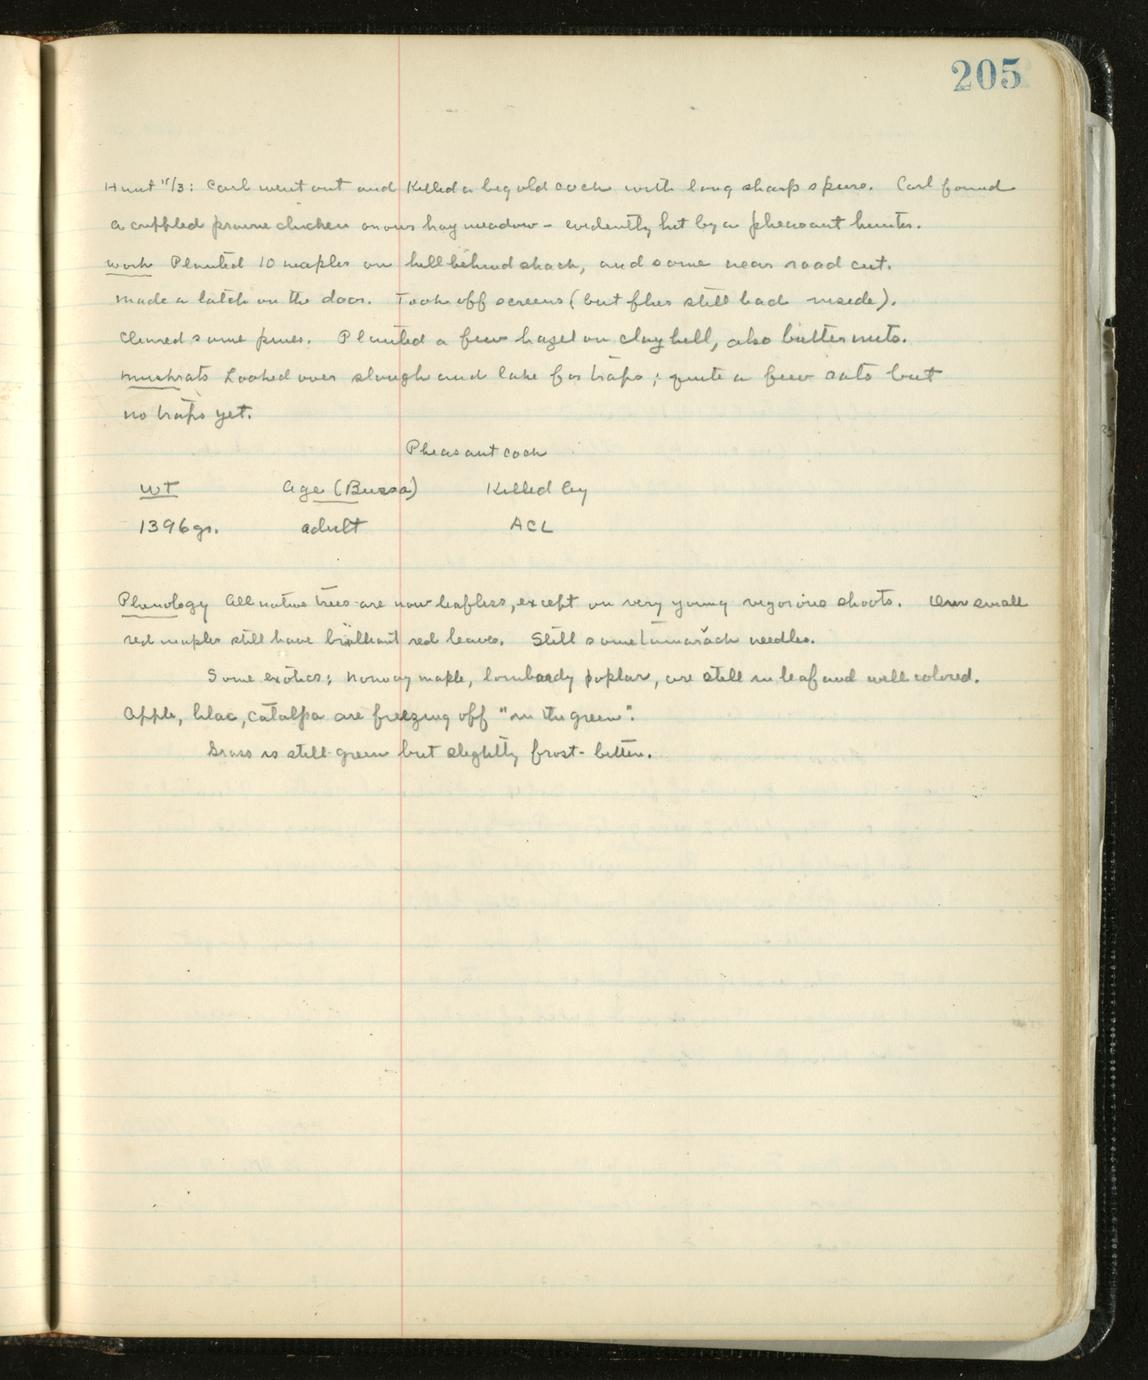 205
Hunt 11/3: Carl went out and killed a big old cock with long sharp spurs. Carl found
a crippled prairie chicken on our hay meadow - evidently hit by a pheasant hunter.
Work Planted 10 maples on hill behind shack, and some near road cut.
Made a latch on the door. Took off screens (but flies still bad inside).
Cleared some pines. Planted a few hazel on clay hill, also butternuts.
Muskrats Looked over slough and lake for traps; quite a few rats but
no traps yet.
Pheasant cock
Wt Age (Bursa) Killed by
1396 gr. adult ACL
Phenology All native trees are now leafless, except on very young vigorous shoots. Our small
red maples still have brilliant red leaves. Still some tamarack needles.
Some exotics; norway maple, lombardy poplar, are still in leaf and well colored.
Apple, lilac, catalpa are freezing off "in the green".
Grass is still green but slightly frost-bitten.